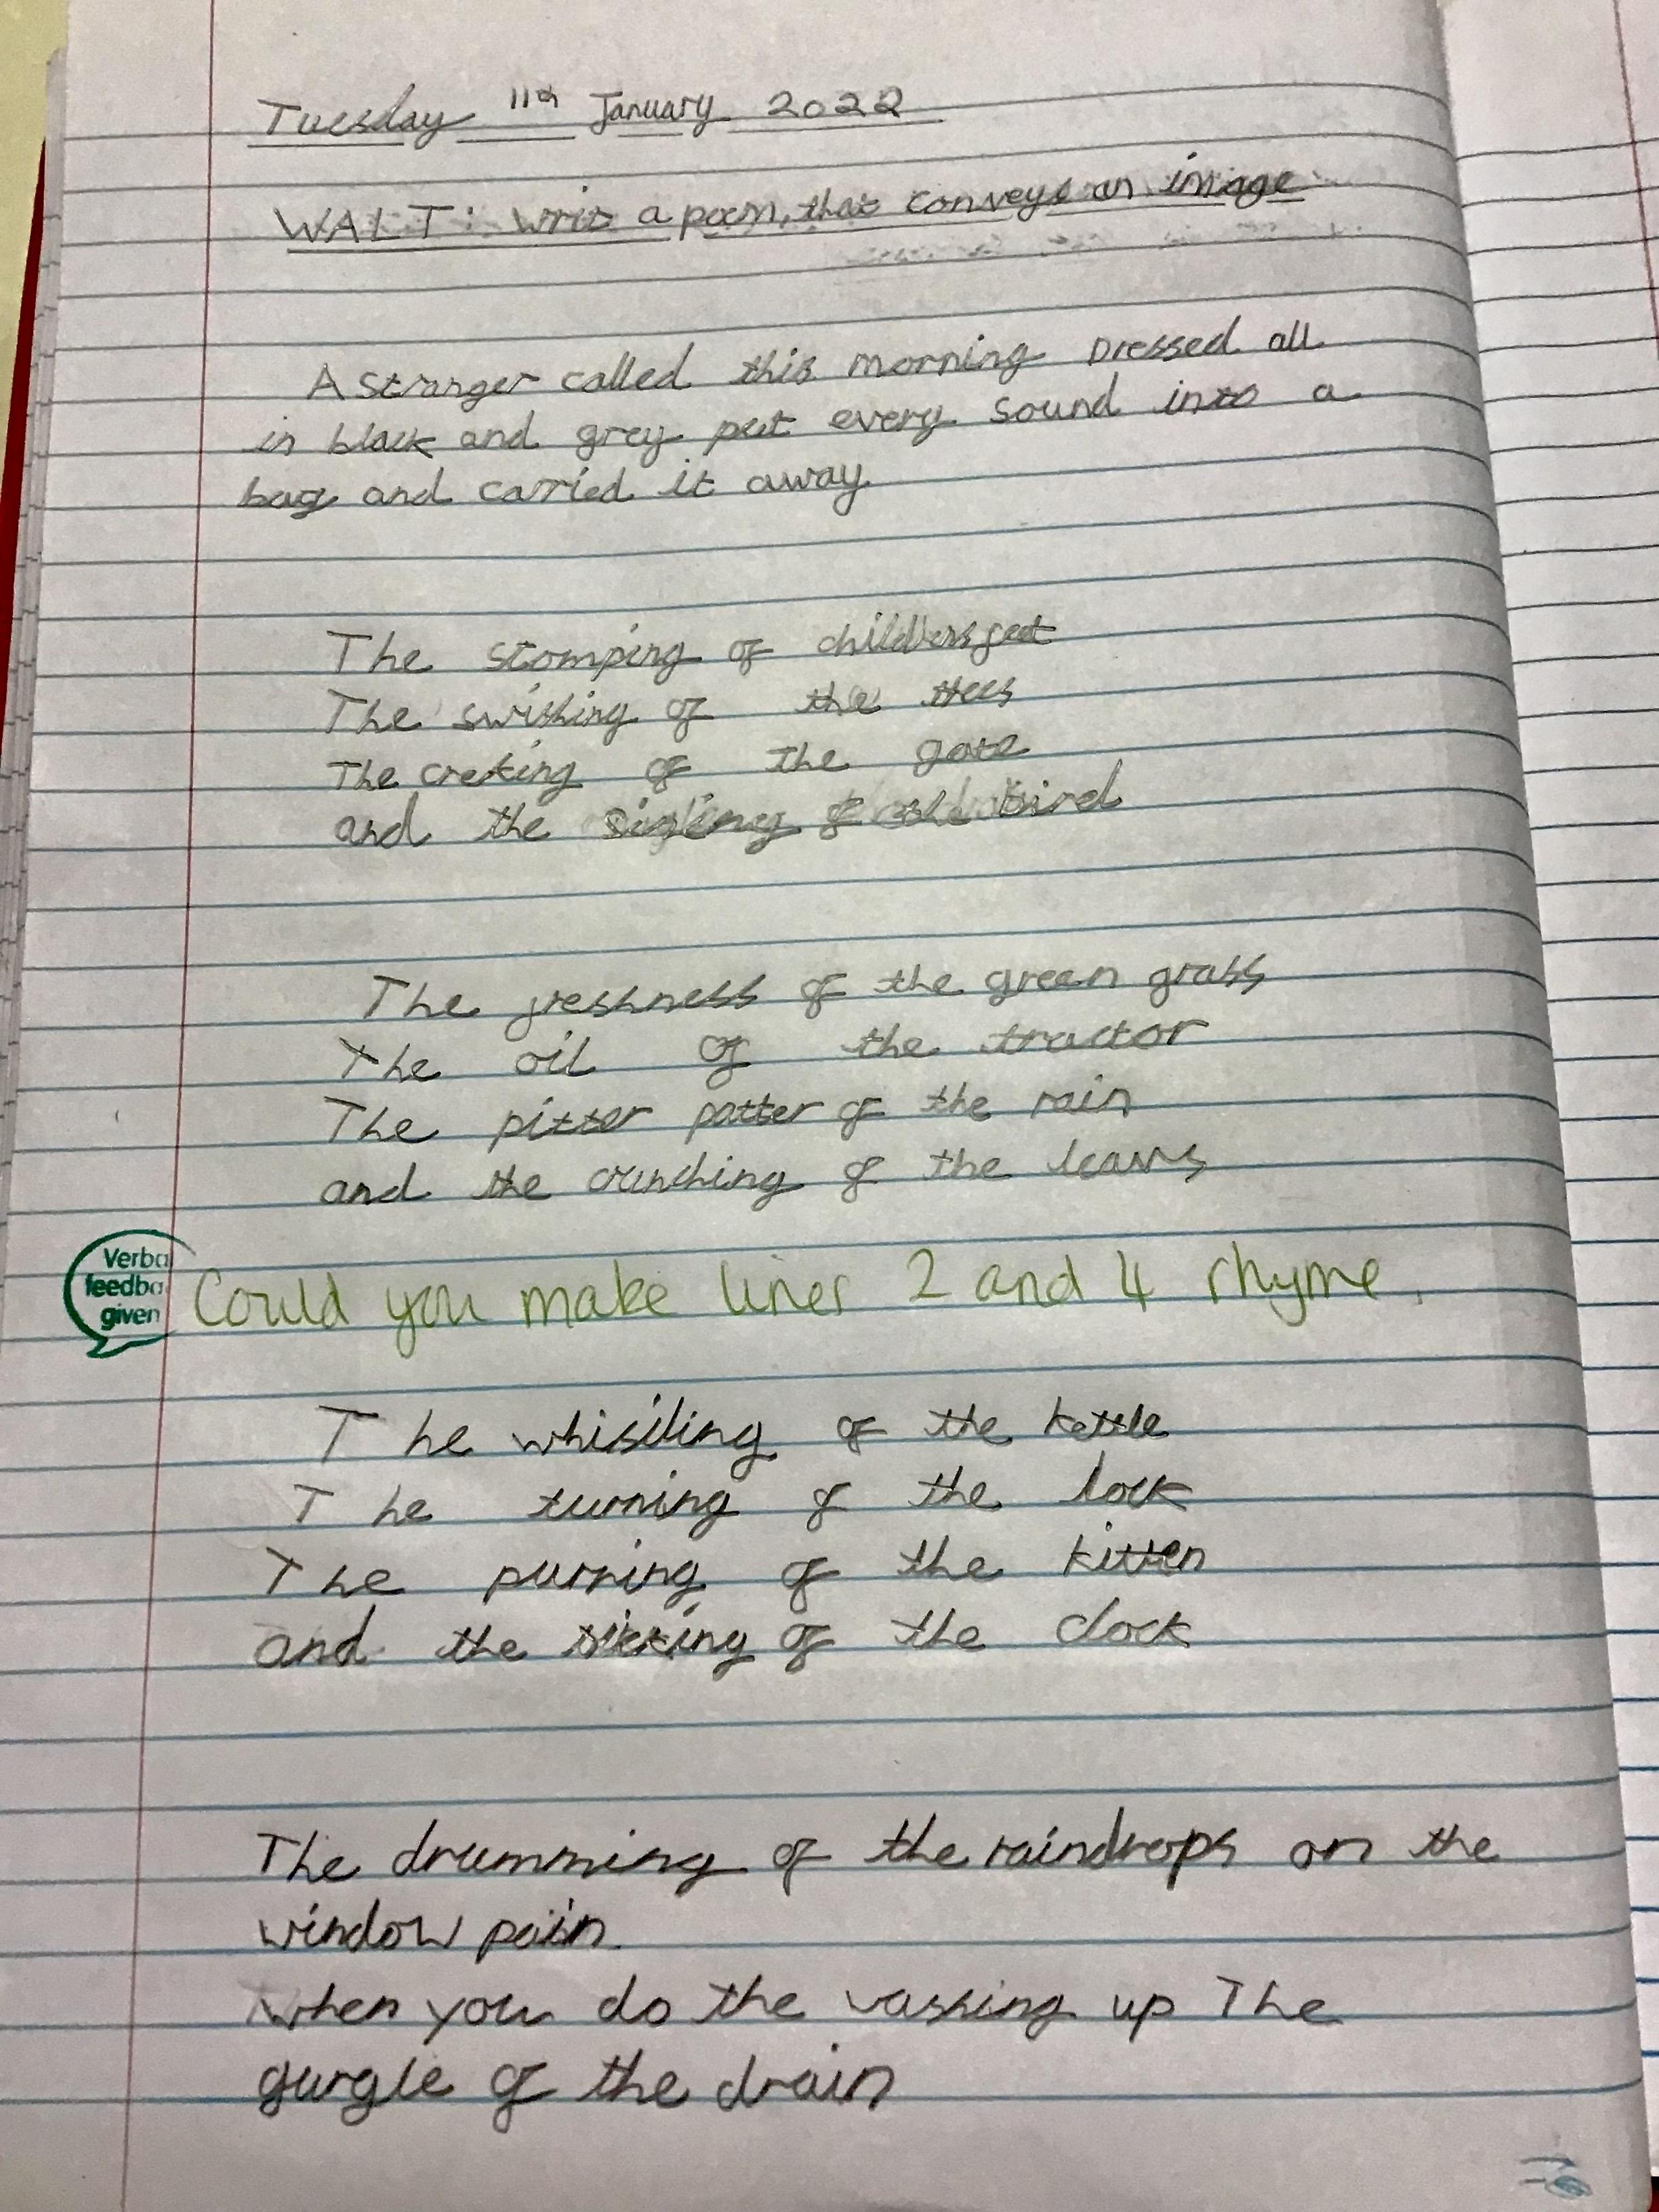 Tuesday 11th January 2022
WALT: write a poem, that conveys an image
A stranger called this morning Dressed all
in black and grey put every sound into a
bag and carried it away
The stomping of feet
The swishing of the trees
The creking of the gate
and the of the bird
The freshness of the green grass
The oil of the tractor
The pitter patter of the rain
and the crunching of the leavs
Verba
feedba
given
Could you make lines 2 and 4 rhyme.
The whisiling of the kettle
The turning of the lock
The purring of the kitten
and the of the clock
The drumming of the raindrops on the
window pain
when you do the washing up The
gurgle of the drain